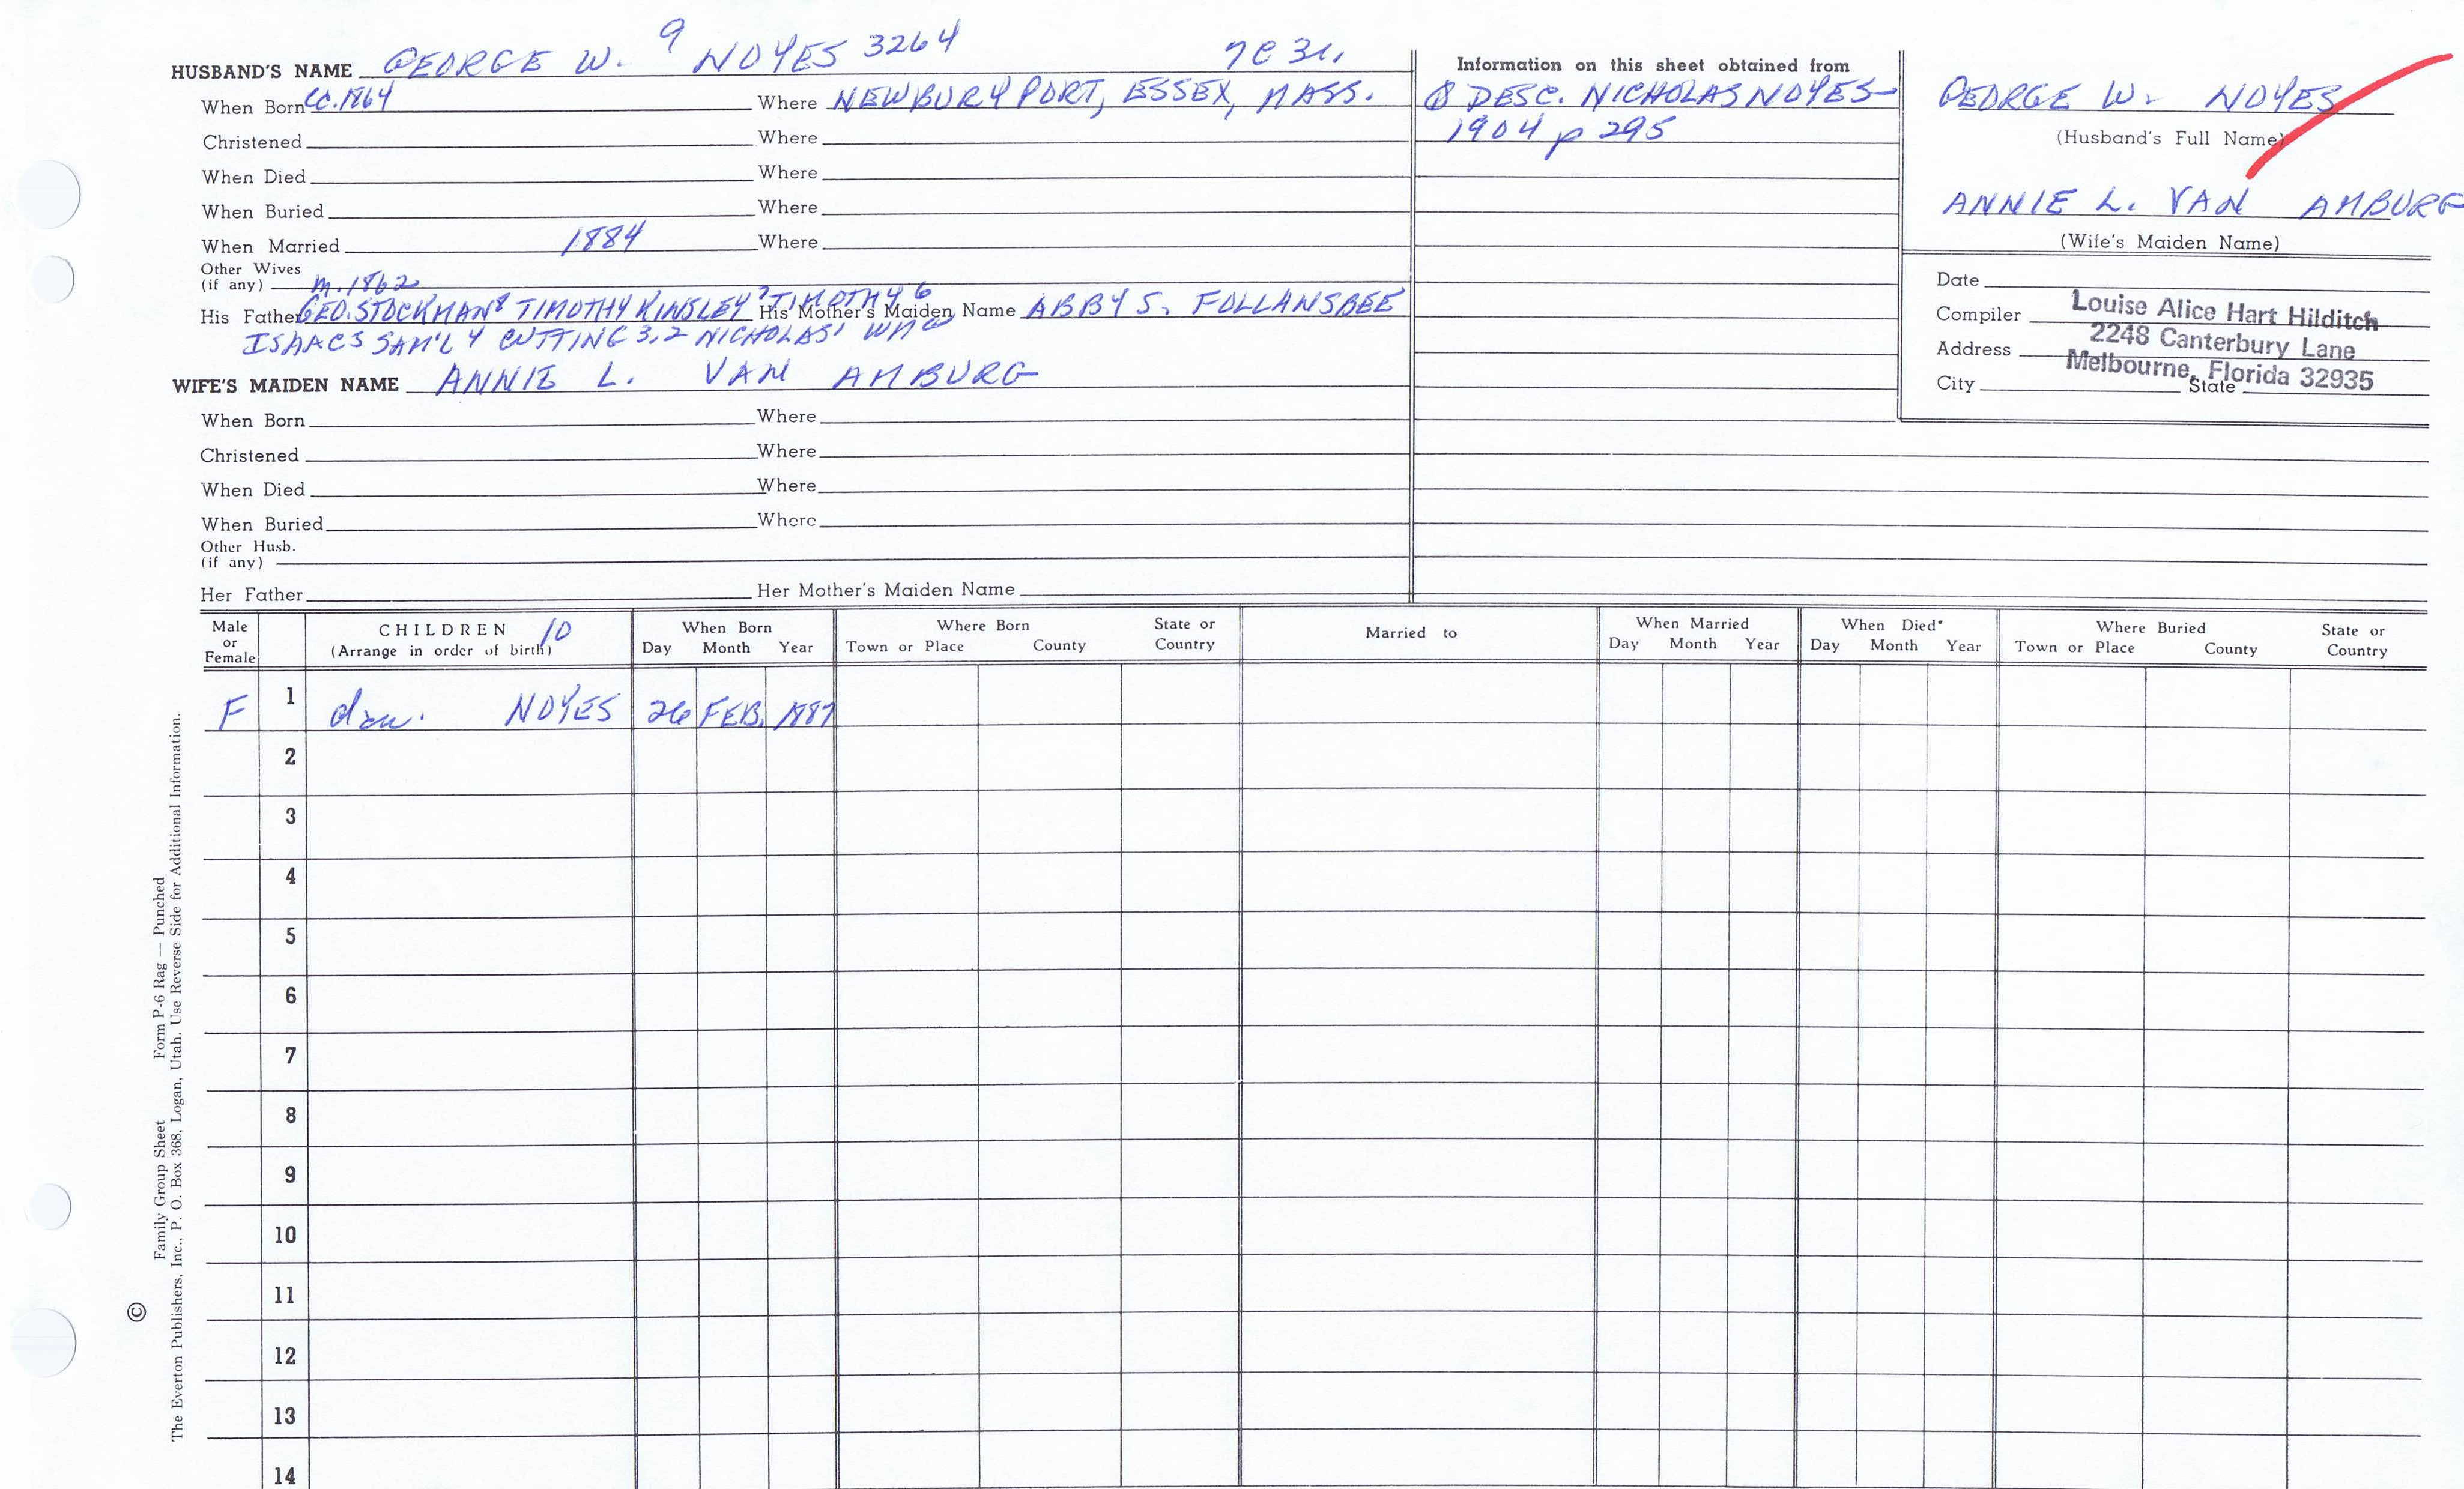 HUSBAND'S NAME GEORGE W. 9 NOYES 3264
When Born CC.1864 Where NEWBURYPORT, ESSEX, MASS.
Christened Where
When Died Where
When Buried Where
When Married 1884 Where
Other Wives
(if any) m. 1862
His Father GEO. STOCKMAN 8 TIMOTHY KINSLEY 7 TIMOTHY 6 His Mother's Maiden Name ABBY S. FOLLANSBEE
ISAAC 5 SAM'L 4 CUTTING 3,2 NICHOLAS 1
WIFE'S MAIDEN NAME ANNIE L. VAN AMBURG
When Born Where
Christened Where
When Died Where
When Buried Where
Other Husb.
(if any)
Her Father Her Mother's Maiden Name
Information on this sheet obtained from
DESC. NICHOLAS NOYES-
1904 p 295
GEORGE W. NOYES
(Husband's Full Name)
ANNIE L. VAN AMBURG
(Wife's Maiden Name)
Date
Compiler Louise Alice Hart Hilditch
Address 2248 Canterbury Lane
Melbourne, Florida 32935
City State
Male or Female CHILDREN 10 (Arrange in order of birth) When Born Day Month Year Where Born Town or Place County State or Country Married to When Married Day Month Year When Died* Day Month Year Where Buried Town or Place County State or Country
F 1 dau. NOYES 26 FEB. 1887
2
3
4
5
6
7
8
9
10
11
12
13
14
Family Group Sheet Form P-6 Rag — Punched
© The Everton Publishers, Inc., P. O. Box 368, Logan, Utah. Use Reverse Side for Additional Information.